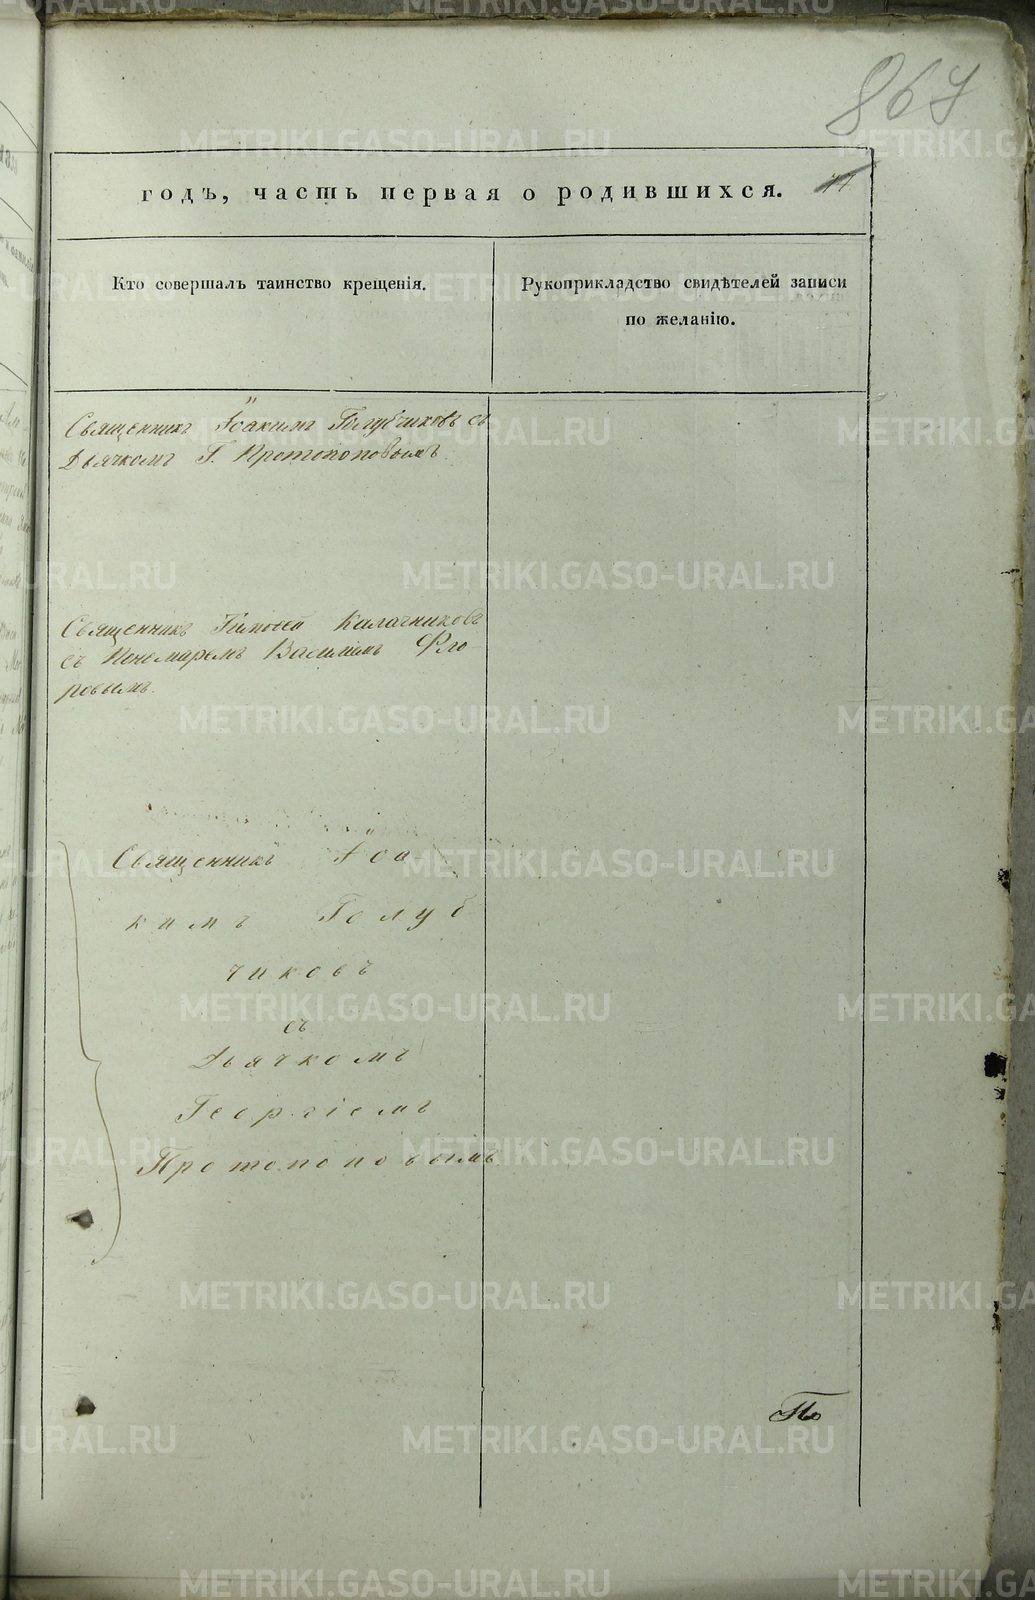 867
годъ, часть первая о родившихся.
Кто совершалъ таинство крещенія.
Рукоприкладство свидѣтелей записи
по желанію.
Священникъ Іоакимъ Голубчиковъ съ
Дьячкомъ Г. Протопоповымъ
Священникъ Тимоѳей Калачниковъ
съ Пономаремъ Василіемъ Фло-
ровымъ.
Священникъ Іоа
кимъ Голуб
чиковъ
съ
Дьячкомъ
Георгіемъ
Протопоповымъ
METRIKI.GASO-URAL.RU